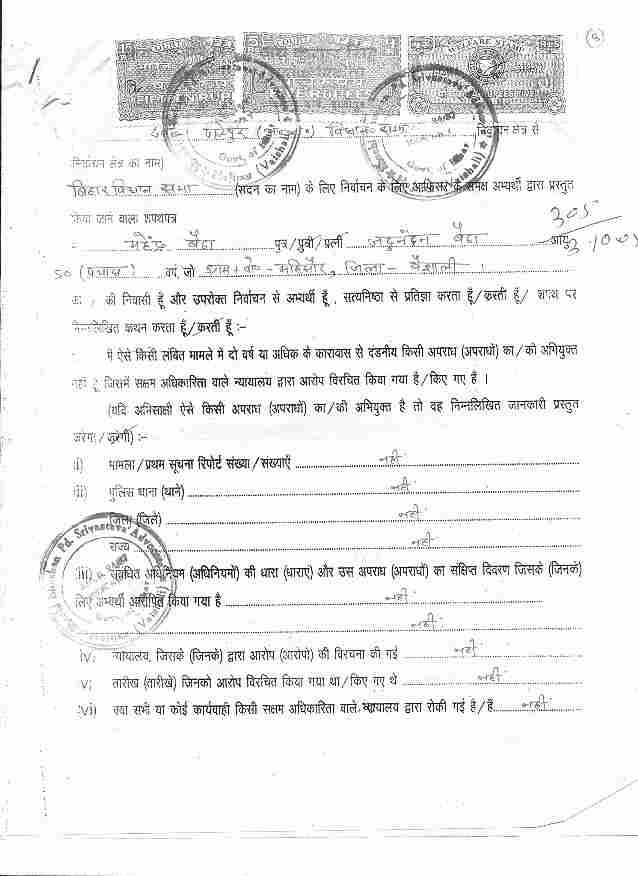 (3)
COURT
COURT
WELFARE STAMP
पातेपुर विधान सभा निर्वाचन क्षेत्र से
निर्वाचन क्षेत्र का नाम)
बिहार विधान सभा (सदन का नाम) के लिए निर्वाचन के लिए आफिसर के समक्ष अभ्यर्थी द्वारा प्रस्तुत
किया जाने वाला शपथपत्र
305
महेंद्र बैठा पुत्र/पुत्री/पत्नी जदुनंदन बैठा आयु
50 (पचास) वर्ष, जो ग्राम+पो०- महिसौर, जिला- वैशाली ।
का / की निवासी हूँ और उपरोक्त निर्वाचन से अभ्यर्थी हूँ , सत्यनिष्ठा से प्रतिज्ञा करता हूँ/करती हूँ/ शपथ पर
निम्नलिखित कथन करता हूँ/करती हूँ :-
मैं ऐसे किसी लंबित मामले में दो वर्ष या अधिक के कारावास से दंडनीय किसी अपराध (अपराधों) का/की अभियुक्त
नहीं हूँ जिसमें सक्षम अधिकारिता वाले न्यायालय द्वारा आरोप विरचित किया गया है/किए गए हैं ।
(यदि अभिसाक्षी ऐसे किसी अपराध (अपराधों) का/की अभियुक्त है तो वह निम्नलिखित जानकारी प्रस्तुत
करेगा/करेगी) :-
i) मामला/प्रथम सूचना रिपोर्ट संख्या/संख्याएँ नहीं
ii) पुलिस थाना (थाने) नहीं
जिला (जिले) नहीं
राज्य नहीं
iii) संबंधित अधिनियम (अधिनियमों) की धारा (धाराएं) और उस अपराध (अपराधों) का संक्षिप्त विवरण जिसके (जिनके)
लिए अभ्यर्थी आरोपित किया गया है नहीं
नहीं
iv) न्यायालय, जिसके (जिनके) द्वारा आरोप (आरोपो) की विरचना की गई नहीं
v) तारीख (तारीखे) जिनको आरोप विरचित किया गया था/किए गए थे नहीं
vi) क्या सभी या कोई कार्यवाही किसी सक्षम अधिकारिता वाले न्यायालय द्वारा रोकी गई है/हैं नहीं
Pd. Srivastava Advocate
(Vaishali)
Govt. of Bihar